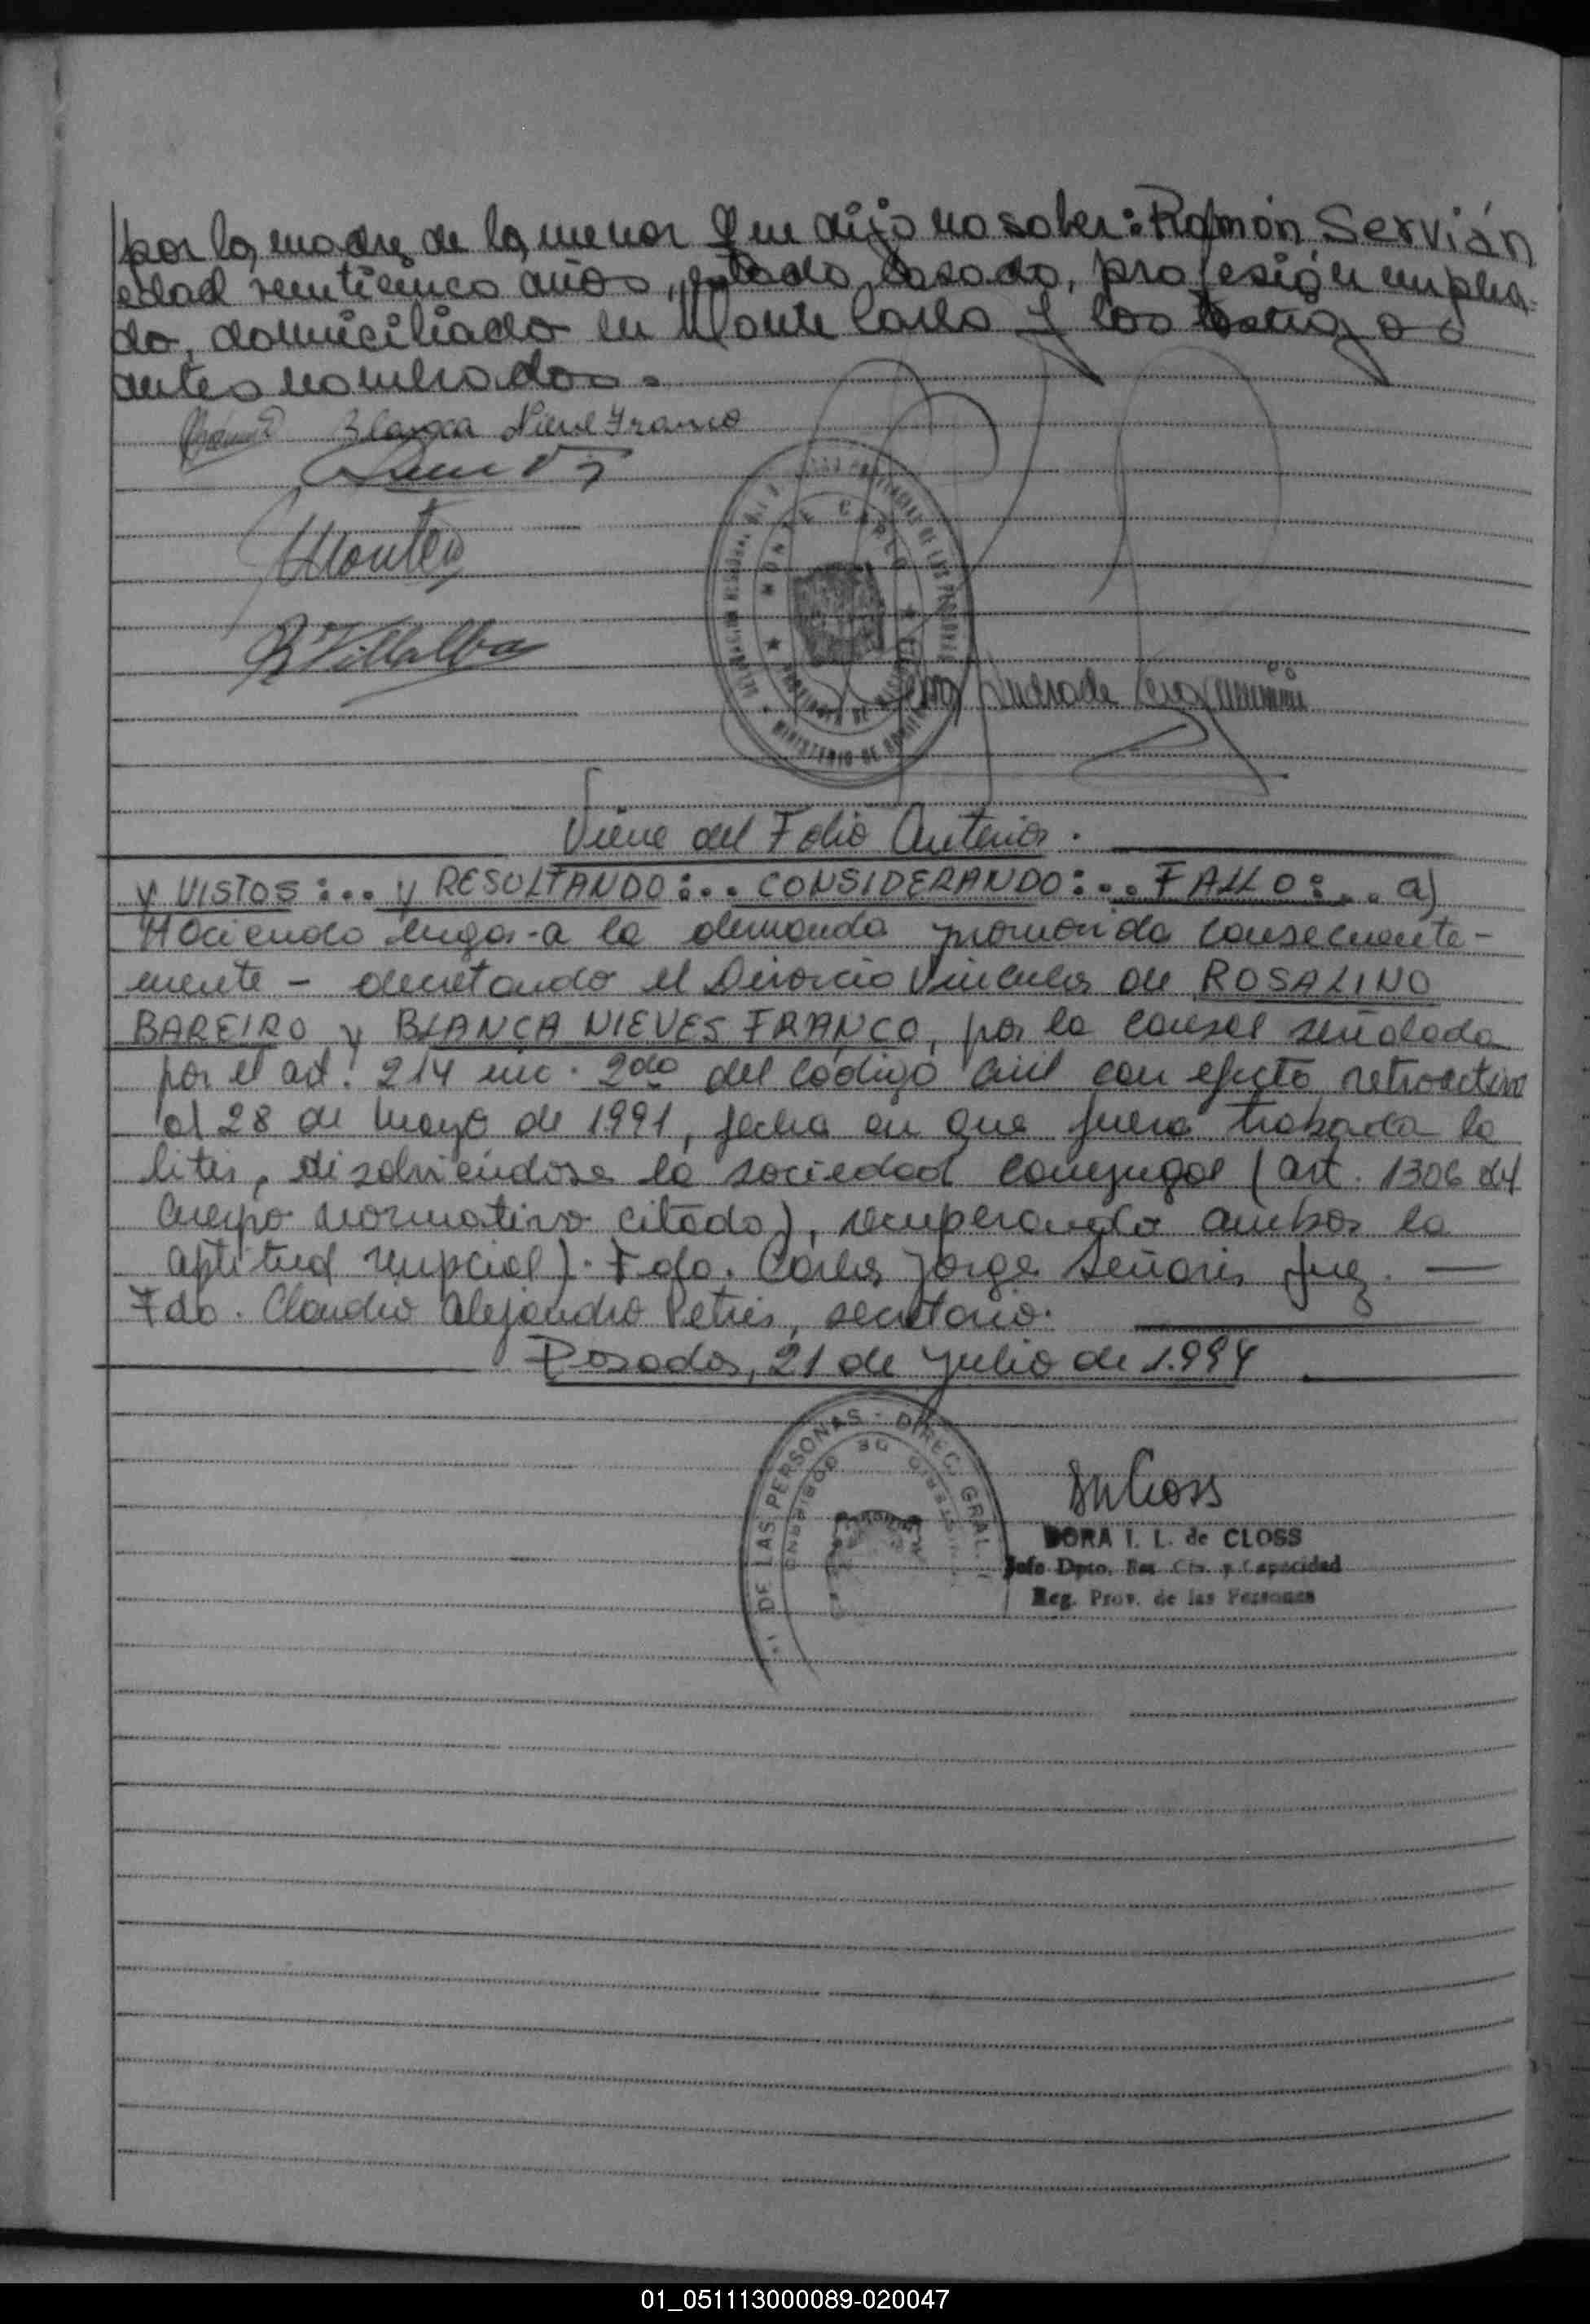 por la madre de la menor que dijo no saber: Ramón Servián
edad veinticinco años, estado casado, profesión emplea-
do, domiciliado en Monte Carlo y los testigos
antes nombrados.
Blanca Nieve Franco
Montes
R Villalba
MONTE CARLO
MINISTERIO DE GOBIERNO
Andrade
Viene del Folio Anterior.
y VISTOS:... y RESULTANDO:.. CONSIDERANDO:... FALLO:... a)
Haciendo lugar-a la demanda promovida consecuente-
mente - decretando el Divorcio Vincular de ROSALINO
BAREIRO y BLANCA NIEVES FRANCO, por la causal señalada
por el art. 214 inc. 2do del Código Civil con efecto retroactivo
al 28 de mayo de 1991, fecha en que fuera trabada la
litis, disolviéndose la sociedad conyugal (art. 1306 del
Cuerpo normativo citado), recuperando ambos la
aptitud nupcial). Fdo. Carlos Jorge Señoris Juez. —
Fdo. Claudio Alejandro Petris, secretario.
Posadas, 21 de julio de 1.994
DE LAS PERSONAS - DIREC. GRAL.
DORA I. L. de CLOSS
Jefe Dpto. Est. Civ. y Capacidad
Reg. Prov. de las Personas
01_051113000089-020047